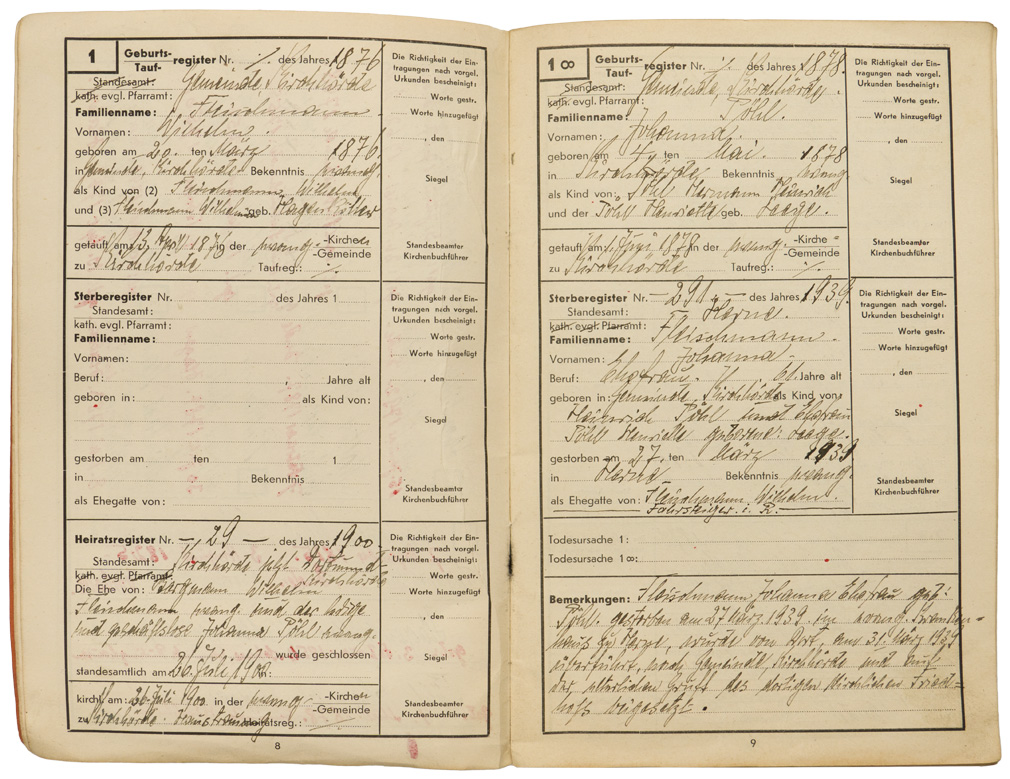 1
Geburts- Taufregister Nr. ·/. des Jahres 1876
Standesamt: Gemeinde, Kirchhörde
kath. evgl. Pfarramt:
Familienname: Fleischmann
Vornamen: Wilhelm.
geboren am 20. ten März 1876.
in Gemeinde, Kirchhörde Bekenntnis evang.
als Kind von (2) Fleischmann Wilhelm
und (3) Fleischmann Wilhelmine geb.
getauft am 13. April 1876 in der evang. -Kirchen -Gemeinde
zu Kirchhörde Taufreg.: ·/.
Die Richtigkeit der Ein-
tragungen nach vorgel.
Urkunden bescheinigt:
Worte gestr.
Worte hinzugefügt
, den
Siegel
Standesbeamter
Kirchenbuchführer
Sterberegister Nr. des Jahres 1
Standesamt:
kath. evgl. Pfarramt:
Familienname:
Vornamen:
Beruf: , Jahre alt
geboren in: als Kind von:
gestorben am ten 1
in Bekenntnis
als Ehegatte von:
Die Richtigkeit der Ein-
tragungen nach vorgel.
Urkunden bescheinigt:
Worte gestr.
Worte hinzugefügt
, den
Siegel
Standesbeamter
Kirchenbuchführer
Heiratsregister Nr. – 29 – des Jahres 1900
Standesamt: Kirchhörde jetzt Dortmund-
kath. evgl. Pfarramt: Kirchhörde
Die Ehe von: Bergmann Wilhelm
Fleischmann evang. und der ledige
und geschäftslose Johanna Pöhl evang.
wurde geschlossen
standesamtlich am 26. Juli 1900.
kirchl. am: 26. Juli 1900 in der evang. -Kirchen -Gemeinde
zu Kirchhörde. Heiratsreg.: ·/.
Die Richtigkeit der Ein-
tragungen nach vorgel.
Urkunden bescheinigt:
Worte gestr.
Worte hinzugefügt
, den
Siegel
Standesbeamter
Kirchenbuchführer
8
1 ∞
Geburts- Taufregister Nr. ·/. des Jahres 1878.
Standesamt: Gemeinde, Kirchhörde.
kath. evgl. Pfarramt:
Familienname: Pöhl.
Vornamen: Johanna.
geboren am 4. ten Mai. 1878
in Kirchhörde Bekenntnis evang
als Kind von: Pöhl Hermann Heinrich
und der Pöhl Henriette geb.
getauft am Juni 1878 in der evang. -Kirche= -Gemeinde
zu Kirchhörde Taufreg.: ·/.
Die Richtigkeit der Ein-
tragungen nach vorgel.
Urkunden bescheinigt:
Worte gestr.
Worte hinzugefügt
, den
Siegel
Standesbeamter
Kirchenbuchführer
Sterberegister Nr. – 291 – des Jahres 1939.
Standesamt: Herne.
kath. evgl. Pfarramt:
Familienname: Fleischmann.
Vornamen: Johanna.
Beruf: Ehefrau. , 60. Jahre alt
geboren in: Gemeinde, Kirchhörde als Kind von:
Heinrich Pöhl und Ehefrau
Pöhl Henriette geborene:
gestorben am 27. ten März 1939
in Herne Bekenntnis evang.
als Ehegatte von: Fleischmann Wilhelm.
Fahrsteiger. i. R.
Die Richtigkeit der Ein-
tragungen nach vorgel.
Urkunden bescheinigt:
Worte gestr.
Worte hinzugefügt
, den
Siegel
Standesbeamter
Kirchenbuchführer
Todesursache 1:
Todesursache 1∞:
Bemerkungen: Fleischmann, Johanna Ehefrau geb:
Pöhl. gestorben am 27 März 1939. im evang. Kranken=
haus zu Herne, wurde von dort, am 31. März 1939
überführt, nach Gemeinde, Kirchhörde und auf
der elterlichen Gruft des dortigen Kirchlichen Fried=
hofs beigesetzt.
9